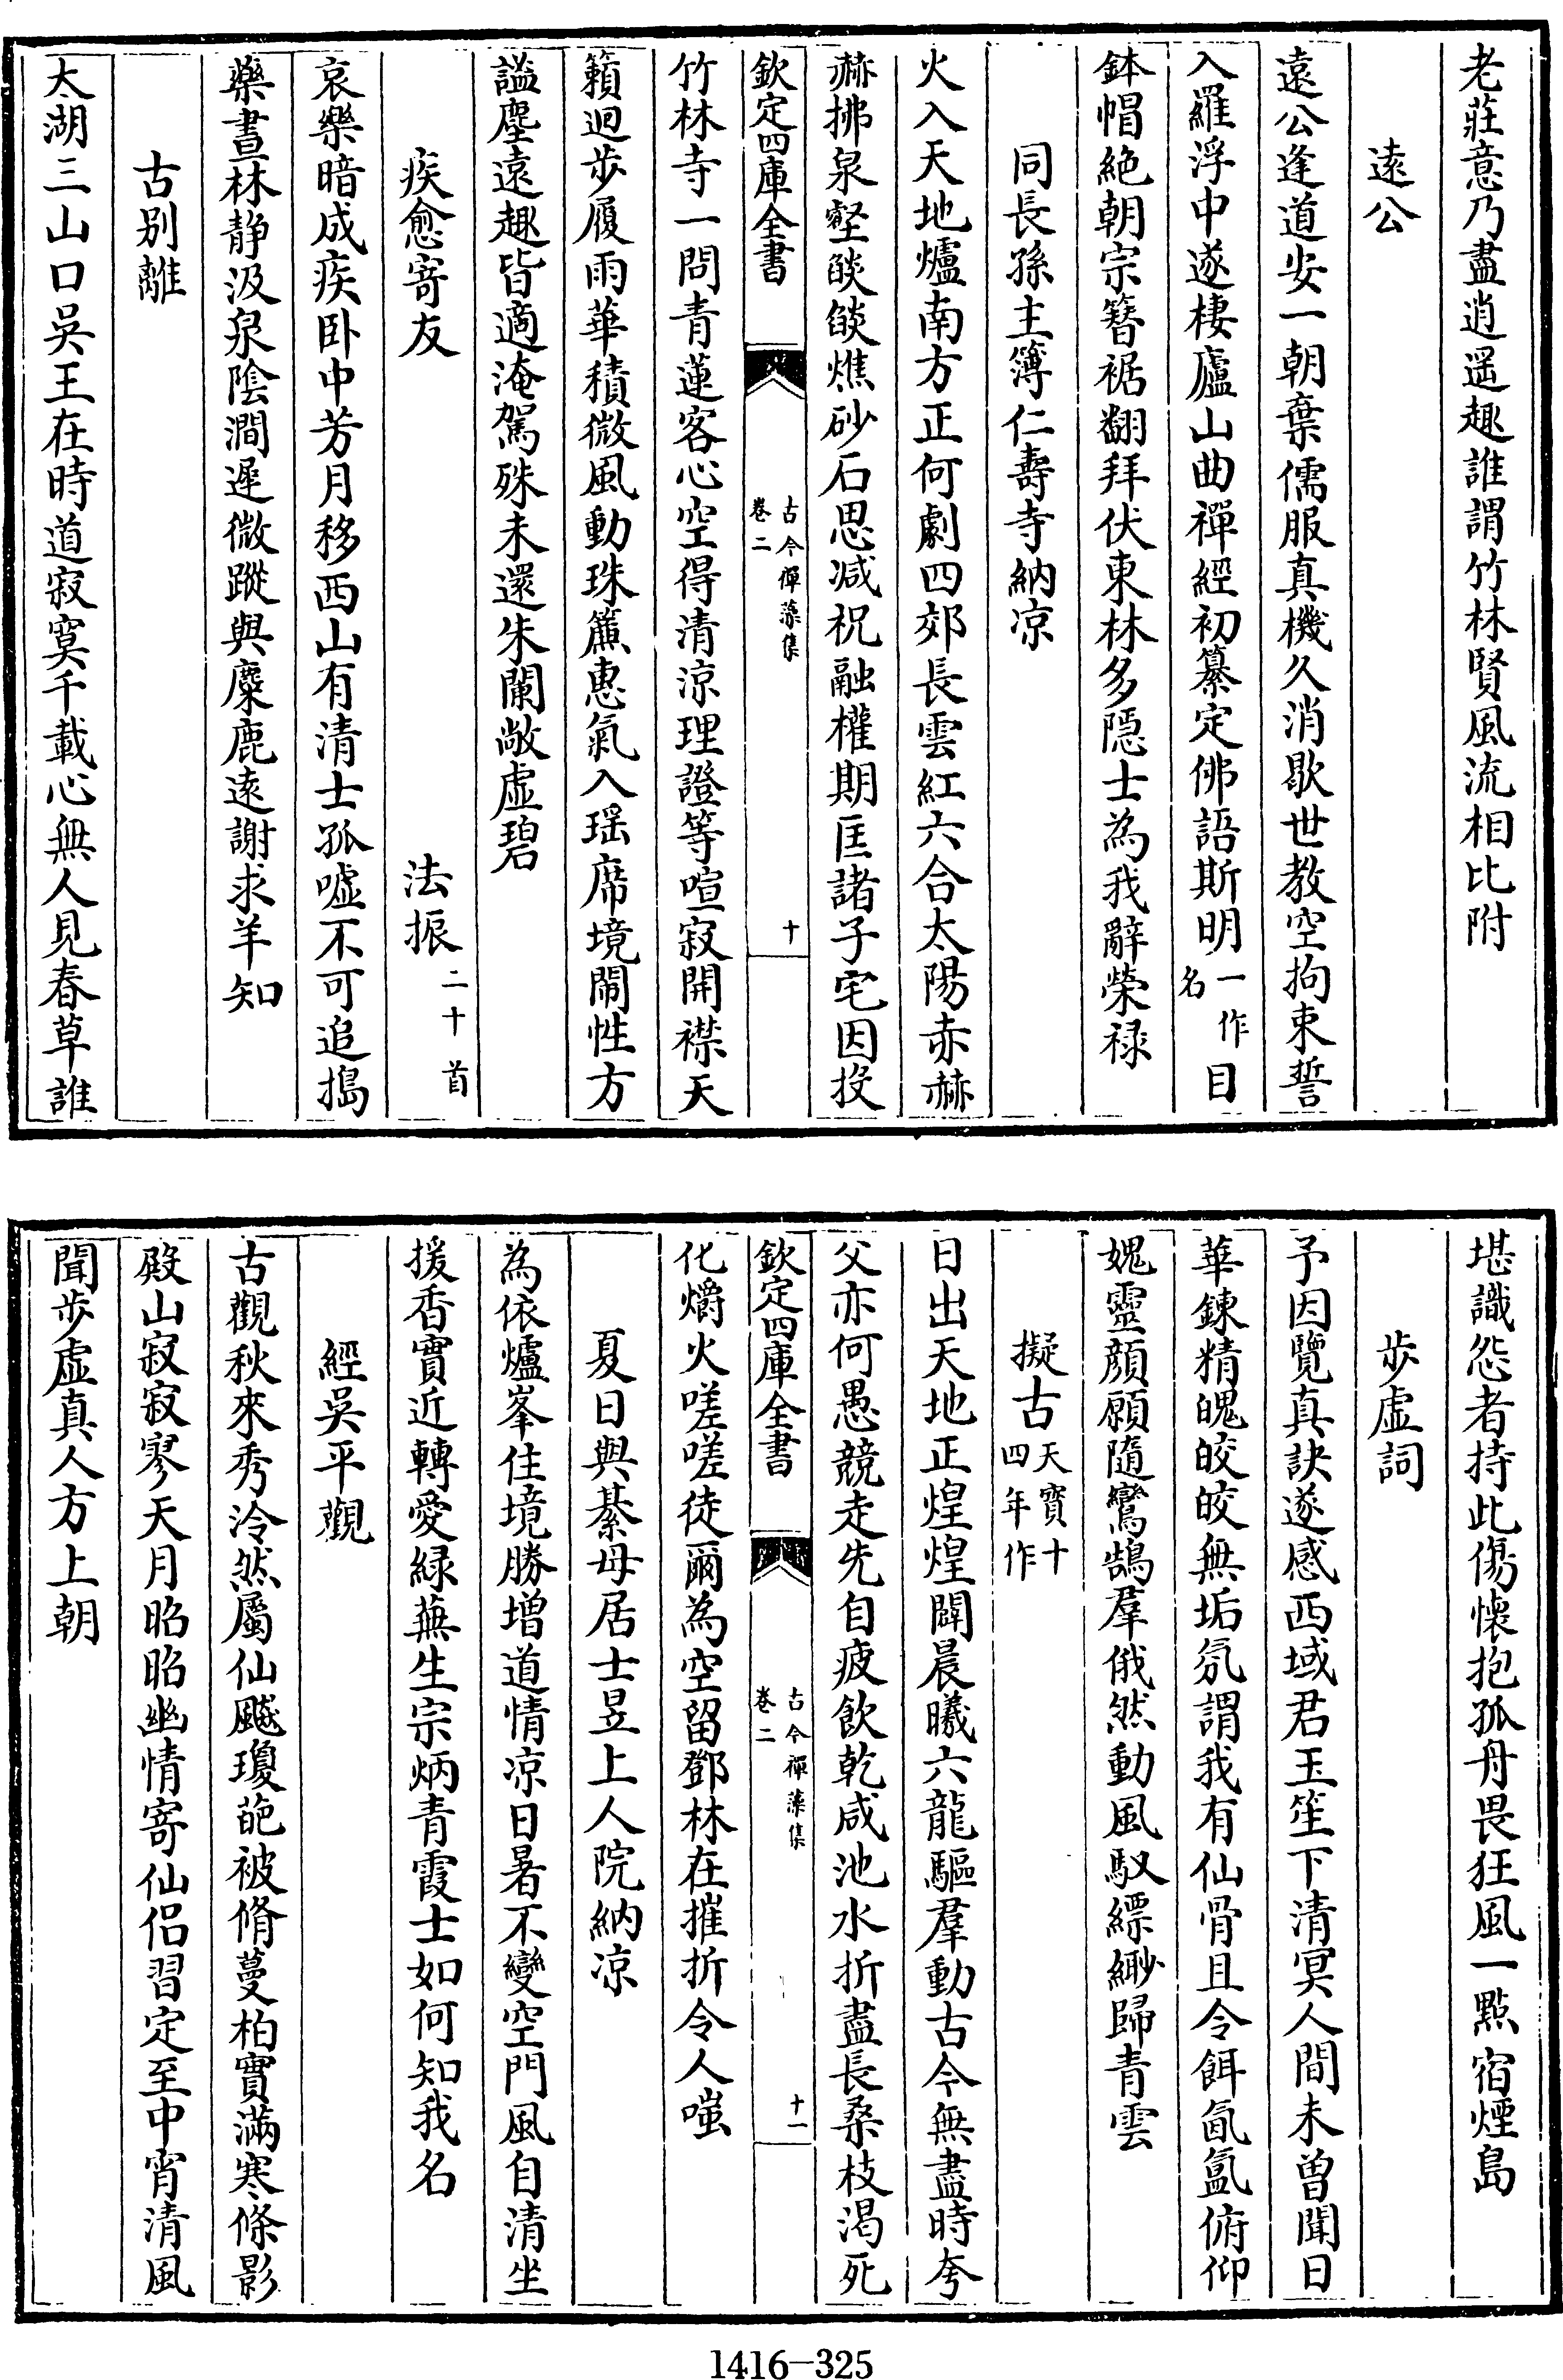 老莊意乃盡逍遥趣誰謂竹林賢風流相比附
遠公
遠公逢道安一朝棄儒服真機久消歇世教空拘束誓
入羅浮中遂棲廬山曲禪經初纂定佛語斯明一作名目
鉢帽絶朝宗簪裾翻拜伏東林多隠士為我辭榮禄
同長孫主簿仁壽寺納凉
火入天地爐南方正何劇四郊長雲紅六合太陽赤赫
赫拂泉壑燄燄燋砂石思减祝融權期匡諸子宅因投
欽定四庫全書
古今禪藻集
卷二
十
竹林寺一問青蓮客心空得清涼理證等喧寂開襟天
籟迥步履雨華積微風動珠簾惠氣入瑶席境閙性方
謐塵遠趣皆適淹駕殊未還朱闌敞虚碧
疾愈寄友
法振二十首
哀樂暗成疾卧中芳月移西山有清士孤噓不可追搗
藥晝林静汲泉陰澗遲微蹤與麋鹿遠謝求羊知
古别離
太湖三山口吳王在時道寂寞千載心無人見春草誰
堪識怨者持此傷懷抱孤舟畏狂風一點宿煙島
步虚詞
予因覽真訣遂感西域君玉笙下清冥人間未曽聞日
華鍊精魄皎皎無垢氛謂我有仙骨且令餌氤氲俯仰
媿靈顔願隨鸞鵠羣俄然動風馭縹緲歸青雲
擬古天寳十四年作
日出天地正煌煌闢晨曦六龍驅羣動古今無盡時夸
父亦何愚競走先自疲飲乾咸池水折盡長桑枝渴死
欽定四庫全書
古今禪藻集
卷二
十一
化爝火嗟嗟徒爾為空留鄧林在摧折令人嗤
夏日與綦母居士昱上人院納凉
為依爐峯住境勝增道情凉日暑不變空門風自清坐
援香實近轉愛緑蕪生宗炳青霞士如何知我名
經吳平觀
古觀秋來秀泠然屬仙飈瓊葩被脩蔓柏實滿寒條影
殿山寂寂寥天月昭昭幽情寄仙侣習定至中宵清風
聞步虚真人方上朝
1416—325